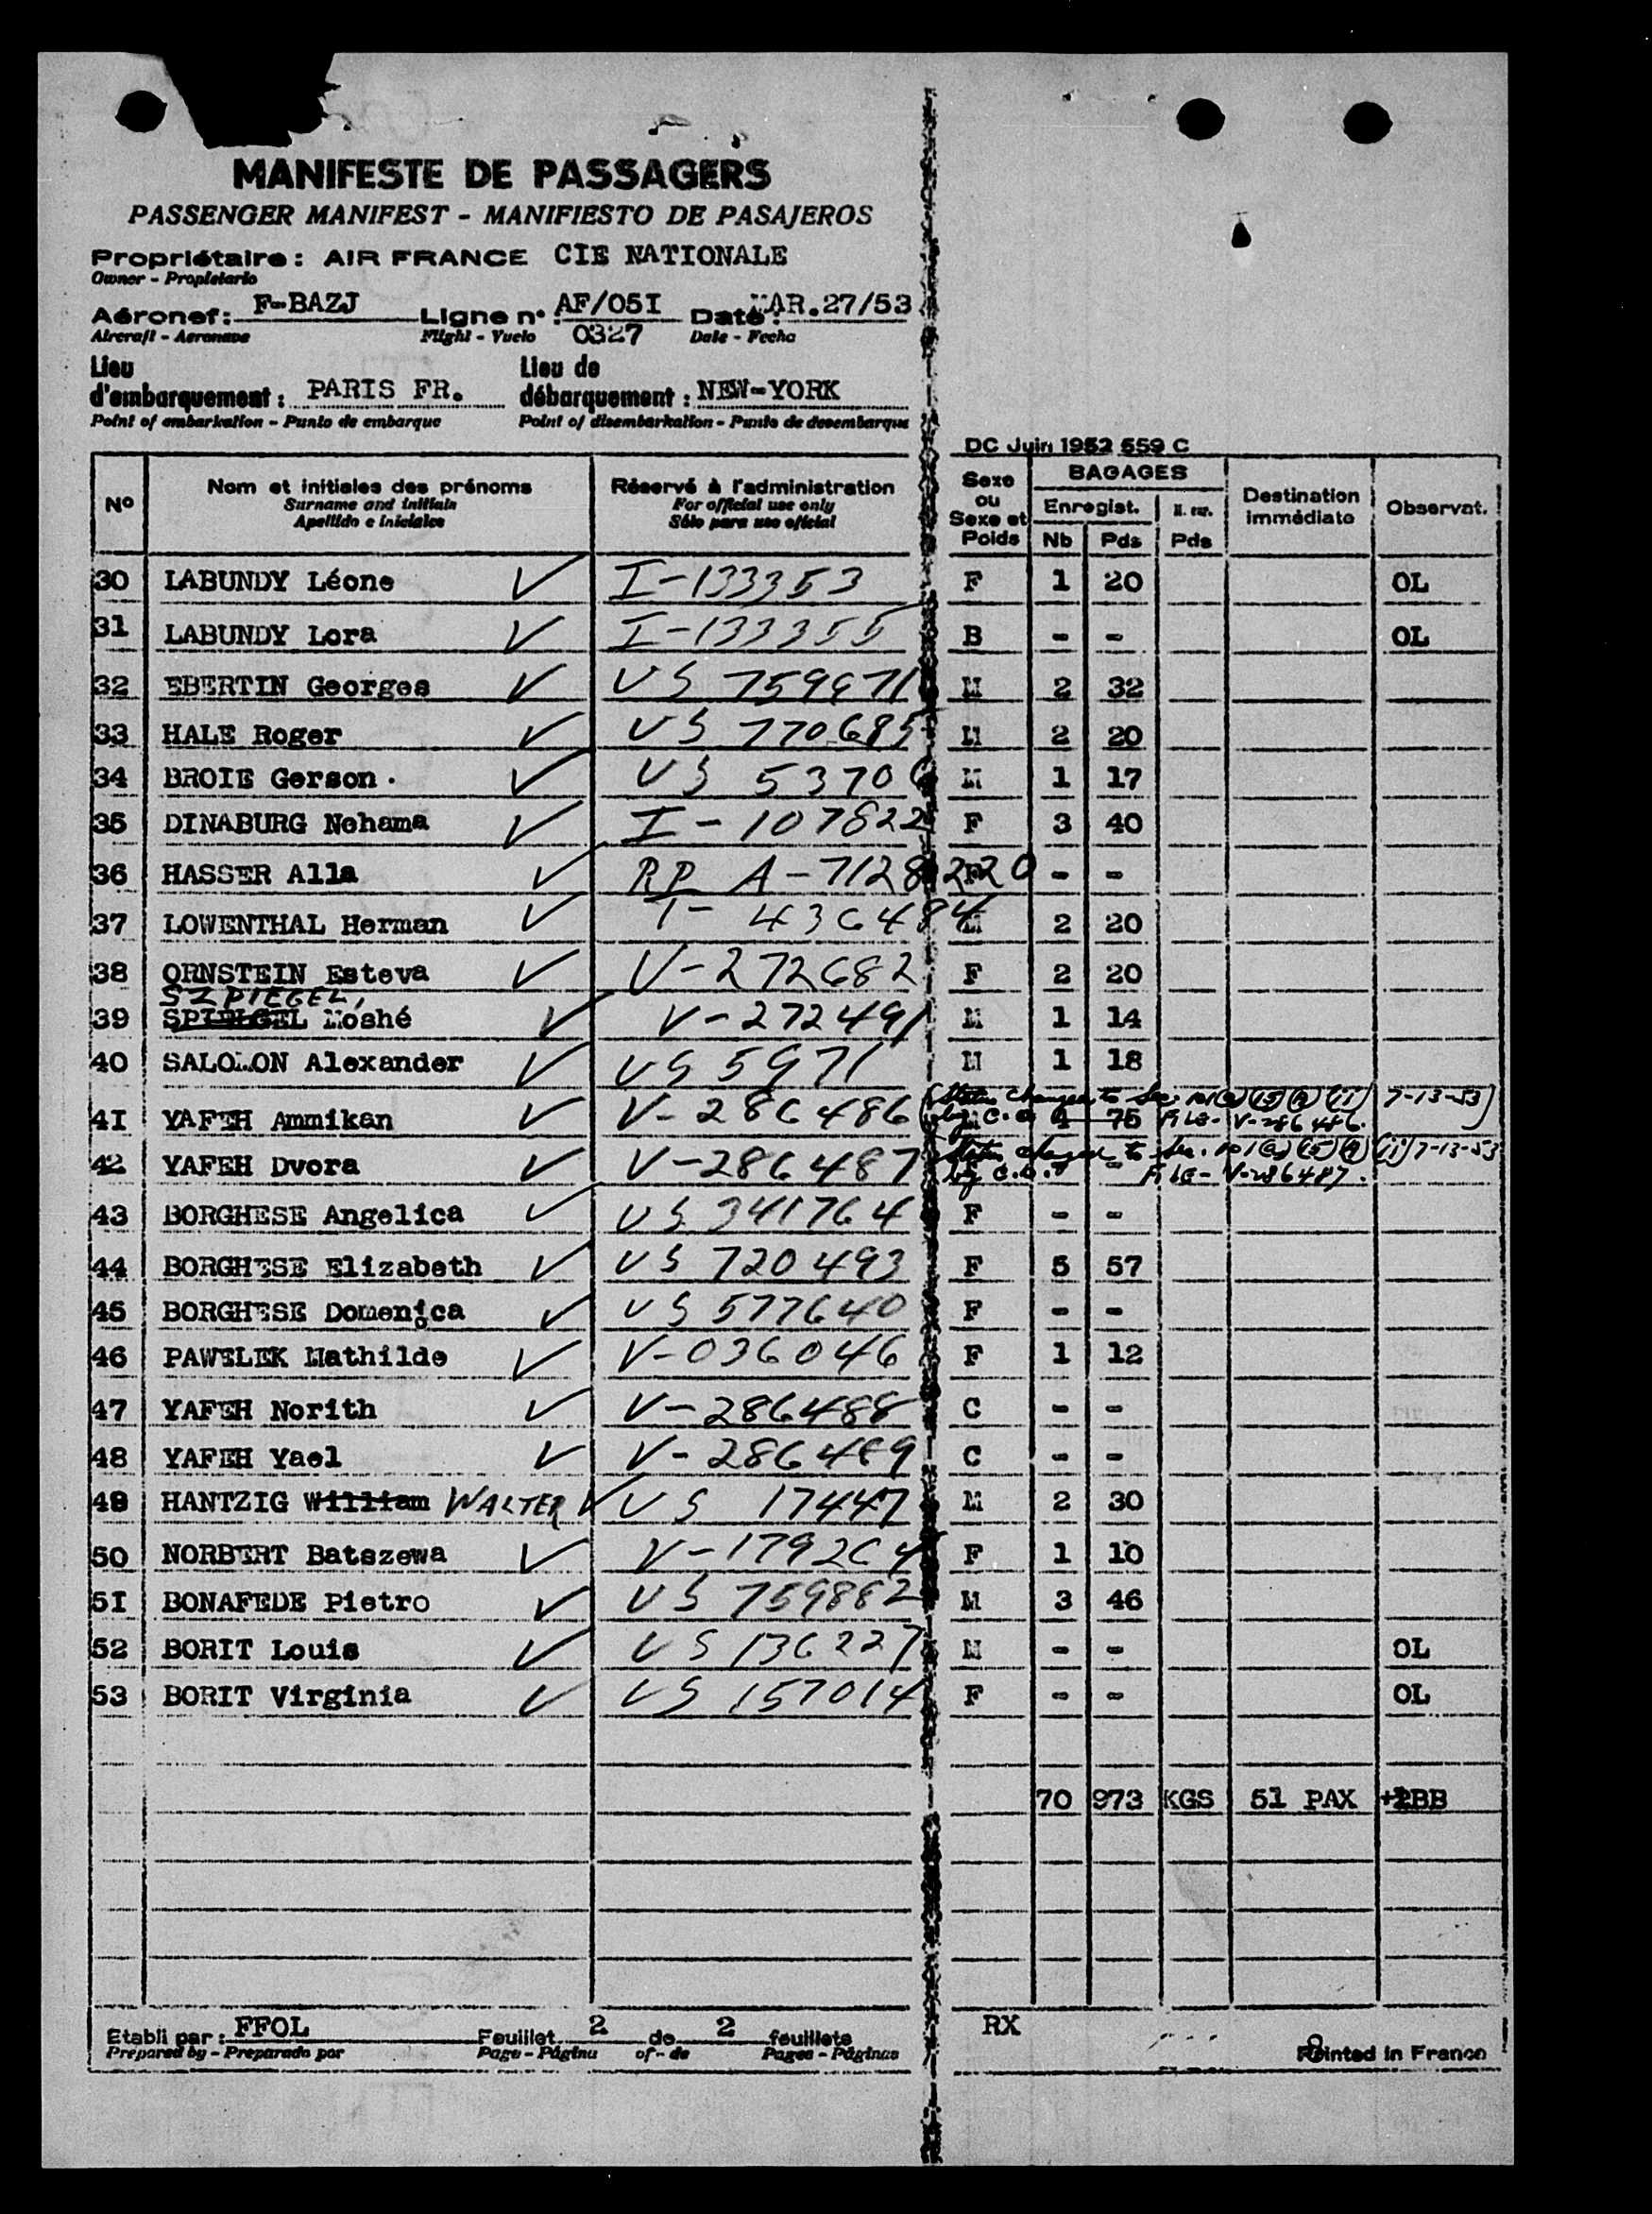 MANIFESTE DE PASSAGERS
PASSENGER MANIFEST - MANIFIESTO DE PASAJEROS
Propriétaire : AIR FRANCE CIE NATIONALE
Owner - Propietario
Aéronef : F-BAZJ Ligne n° : AF/05I Date : MAR.27/53
Aircraft - Aeronave Flight - Vuelo 0327 Date - Fecha
Lieu d'embarquement : PARIS FR. Lieu de débarquement : NEW-YORK
Point of embarkation - Punto de embarque Point of disembarkation - Punto de desembarque
DC Juin 1952 559 C
N° Nom et initiales des prénoms Réservé à l'administration Sexe ou Sexe et Poids BAGAGES Destination immédiate Observat.
Surname and initials For official use only Enregist.
Apellido e iniciales Sólo para uso oficial Nb Pds Pds
30 LABUNDY Léone ✓ I-133353 F 1 20 OL
31 LABUNDY Lora ✓ I-133355 B - - OL
32 EBERTIN Georges ✓ US 759971 M 2 32
33 HALE Roger ✓ US 770685 M 2 20
34 BROIE Gerson . ✓ US 5370 M 1 17
35 DINABURG Nehama ✓ I-107822 F 3 40
36 HASSER Alla ✓ RP A-7128220 F - -
37 LOWENTHAL Herman ✓ T-436484 M 2 20
38 ORNSTEIN Esteva ✓ V-272682 F 2 20
SZPIEGEL,
39 SPIEGEL Moshé ✓ V-272491 M 1 14
40 SALOMON Alexander ✓ US 5971 M 1 18
(Status changed to Sec. 101(a)(15)(A)(ii) 7-13-53)
41 YAFEH Ammikan ✓ V-286486 by C.O. M 4 75 File- V-286486.
Status changed to Sec. 101(a)(15)(A)(ii) 7-13-53
42 YAFEH Dvora ✓ V-286487 by C.O. - File- V-286487.
43 BORGHESE Angelica ✓ US 341764 F - -
44 BORGHESE Elizabeth ✓ US 720493 F 5 57
45 BORGHESE Domenica ✓ US 577640 F - -
46 PAWELEK Mathilde ✓ V-036046 F 1 12
47 YAFEH Norith ✓ V-286488 C - -
48 YAFEH Yael ✓ V-286489 C - -
49 HANTZIG William WALTER ✓ US 17447 M 2 30
50 NORBERT Batszewa ✓ V-179264 F 1 10
5I BONAFEDE Pietro ✓ US 759882 M 3 46
52 BORIT Louis ✓ US 136227 M - - OL
53 BORIT Virginia ✓ US 157014 F - - OL
70 973 KGS 51 PAX +2BB
Etabli par : FFOL Feuillet 2 de 2 feuillets RX
Prepared by - Preparado por Page - Página of - de Pages - Páginas Printed in France